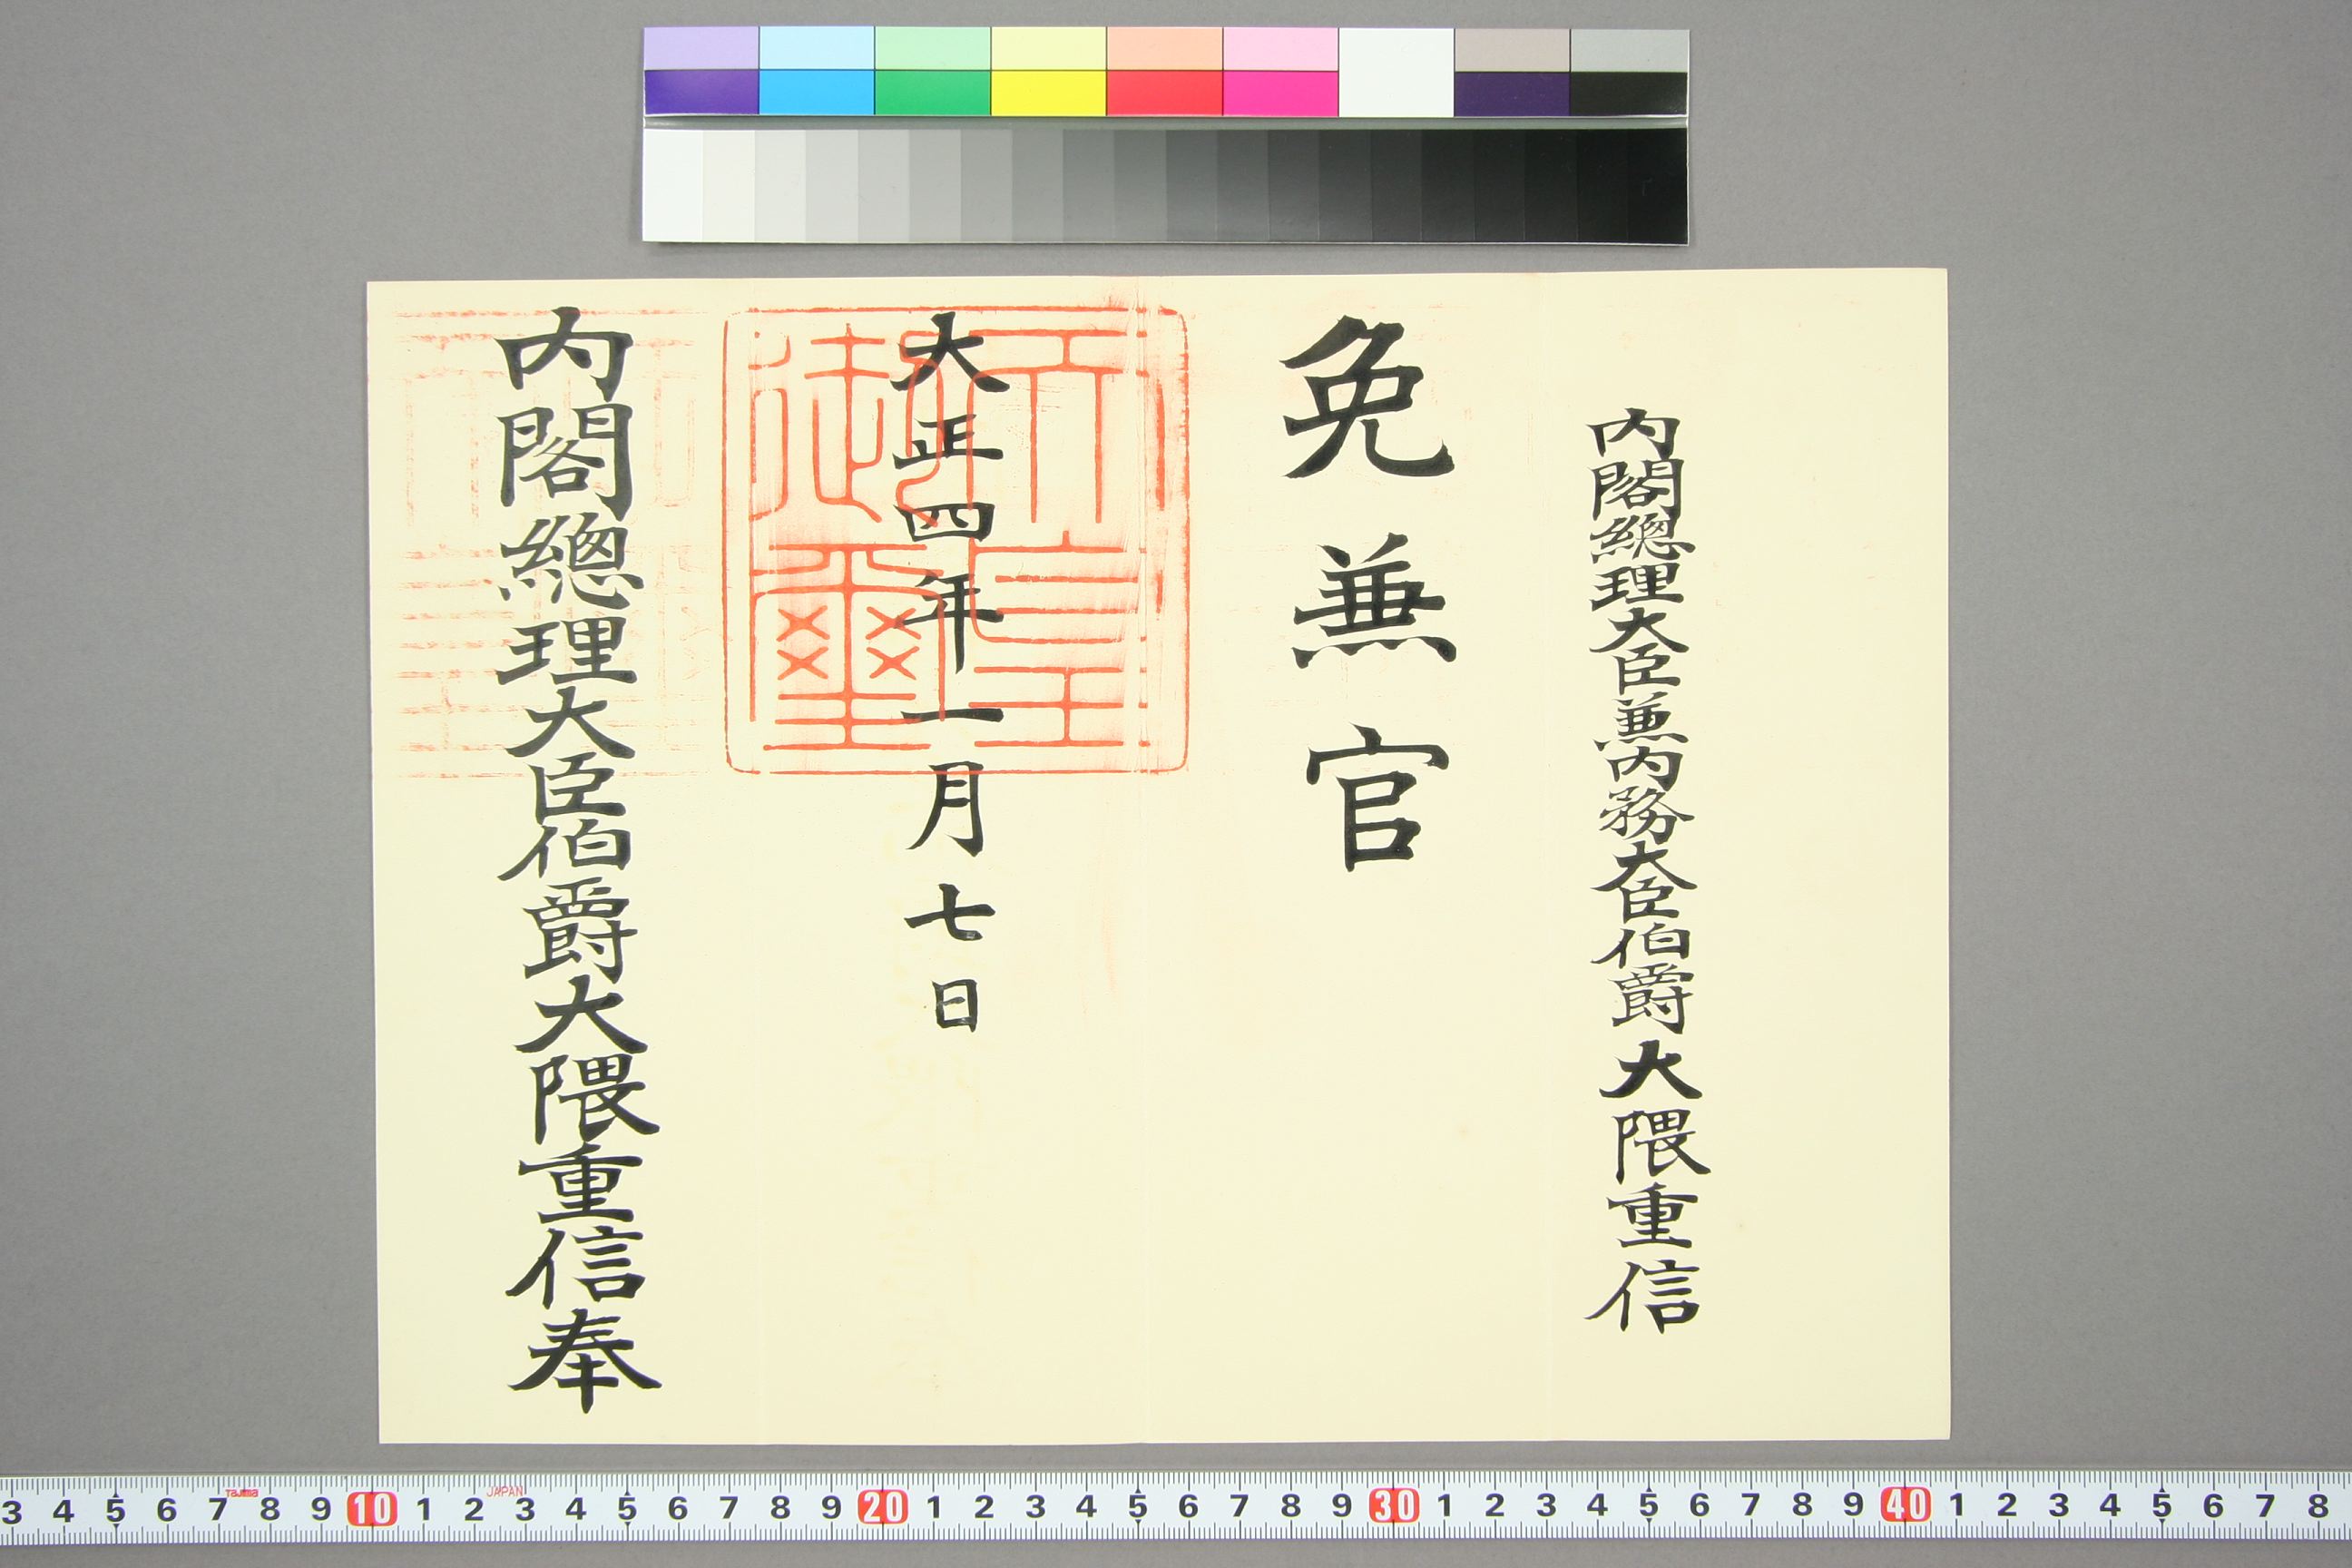 内閣總理大臣兼内務大臣伯爵大隈重信
免兼官
天皇御璽
大正四年一月七日
内閣總理大臣伯爵大隈重信奉
3 4 5 6 7 8 9 10 1 2 3 4 5 6 7 8 9 20 1 2 3 4 5 6 7 8 9 30 1 2 3 4 5 6 7 8 9 40 1 2 3 4 5 6 7 8
Tajima
JAPAN